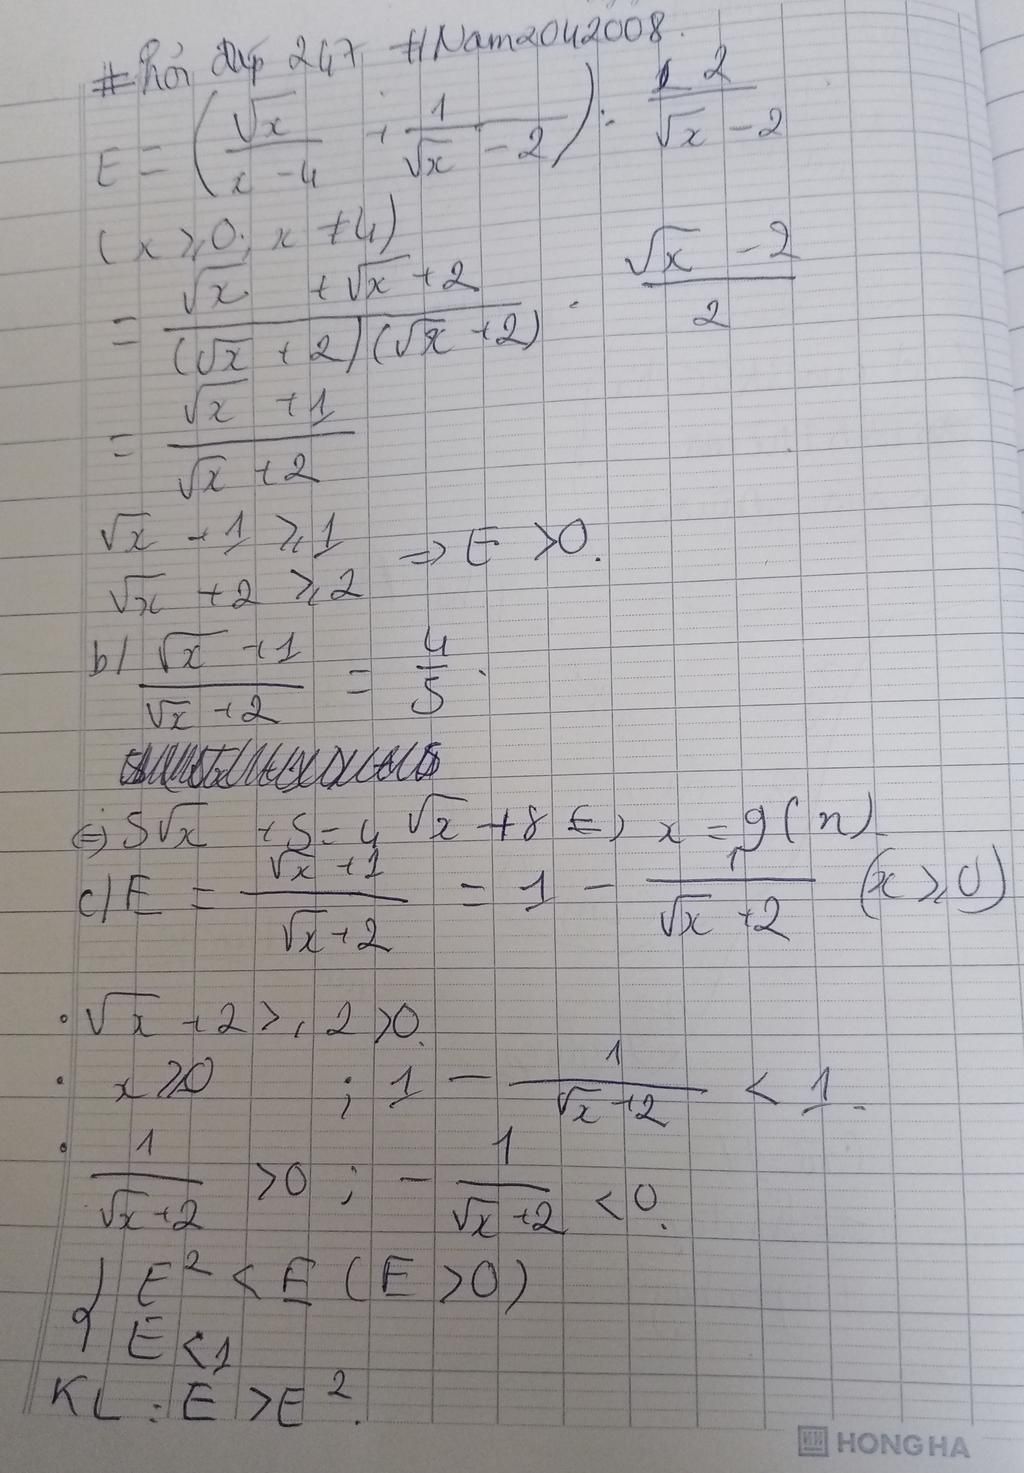 #hỏi đáp 247 #Nam2042008.
E = (√x/(x - 4) + 1/(√x - 2)) : 2/(√x - 2)
(x ≥ 0; x ≠ 4)
= (√x + √x + 2)/((√x + 2)(√x + 2)) · (√x - 2)/2
= (√x + 1)/(√x + 2)
√x + 1 ≥ 1 ⇒ E > 0.
√x + 2 ≥ 2
b/ (√x + 1)/(√x + 2) = 4/5.
⇔ 5√x + 5 = 4√x + 8 ⇔ x = 9 (n)
c/ E = (√x + 1)/(√x + 2) = 1 - 1/(√x + 2) (x ≥ 0)
• √x + 2 ≥ 2 > 0.
• x ≥ 0 ; 1 - 1/(√x + 2) < 1.
• 1/(√x + 2) > 0 ; - 1/(√x + 2) < 0.
E² < E (E > 0)
E < 1
KL : E > E².
HONG HA